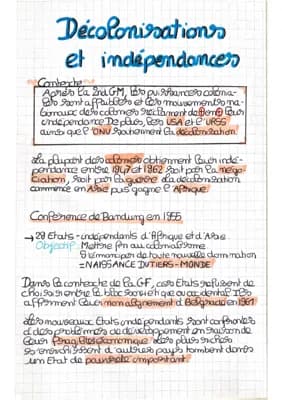 Décolonisations
et indépendances
Contexte
Après la 2nd GM, les puissances colonia-
les sont affaiblies et les mouvements na-
tionaux des colonies réclament de leur
indépendance. De plus, les USA et l'URSS
ainsi que l'ONU soutiennent la décolonisation.
La plupart des colonies obtiennent leur indé-
pendance entre 1947 et 1962 soit par la négo-
ciation, soit par la guerre. La décolonisation
commence en Asie puis gagne l'Afrique.
Conférence de Bandung en 1955
→ 29 Etats indépendants d'Afrique et d'Asie
Objectif: Mettre fin au colonialisme
S'émanciper de toute nouvelle domination
= NAISSANCE DU TIERS-MONDE
Dans le contexte de la GF, ces Etats refusent de
choisir entre le bloc soviétique ou occidental. Ils
affirment leur non alignement à Belgrade en 1961
Les nouveaux Etats indépendants sont confrontés
à des problèmes de développement en raison de
leur fragilité économique. Les plus riches
s'enrichissent d'autres pays tombent dans
un Etat de pauvreté important.